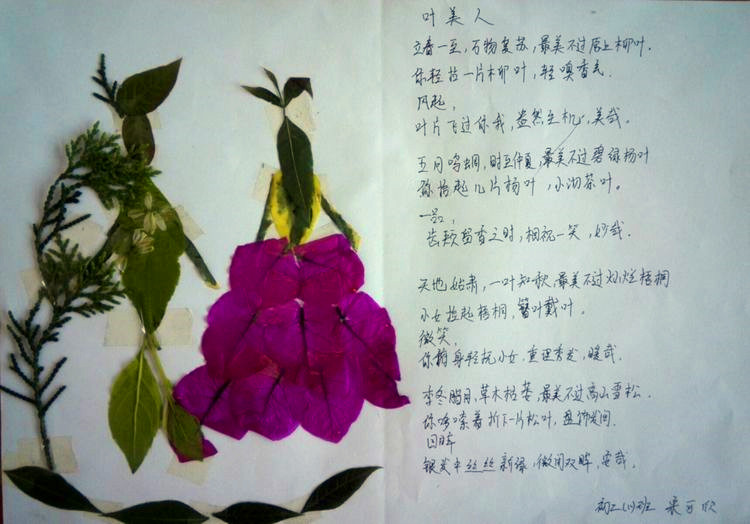 叶美人
立春一至，万物复苏，最美不过后上柳叶.
你轻拈一片柳叶，轻嗅香气.
风起，
叶片飞过你我，盎然生机，美哉.
五月鸣蜩，时至仲夏，最美不过碧绿杨叶
你拾起几片杨叶，小沏茶叶。
一品，
齿颊留香之时，相视一笑，妙哉.
天地始肃，一叶知秋，最美不过灿烂梧桐
小女拉起梧桐，簪叶戴叶.
微笑，
你俯身轻抚小女，重理秀发，暖哉.
季冬腊月，草木枯萎，最美不过高山雪松.
你哆嗦着折下一片松叶，
回眸
银装中丝丝新绿，微闭双眸，安哉.
初二(1)班